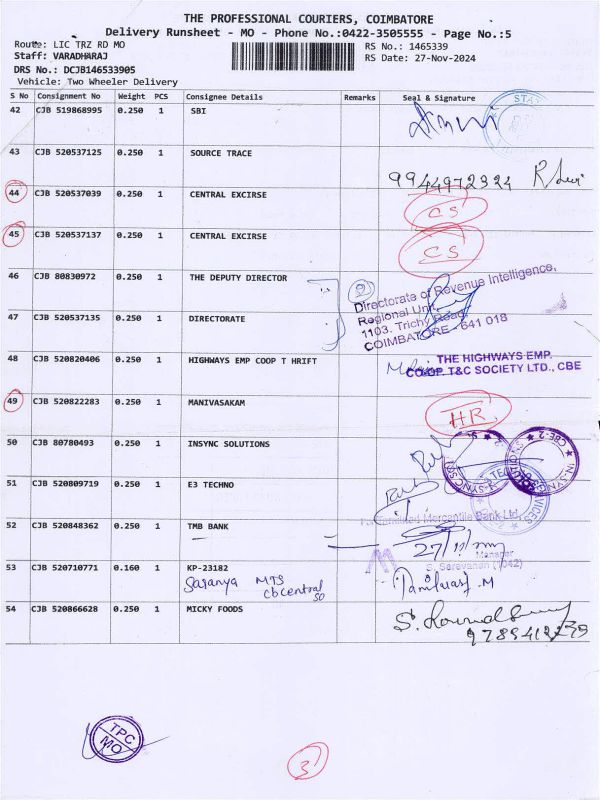 THE PROFESSIONAL COURIERS, COIMBATORE
Delivery Runsheet - MO - Phone No.:0422-3505555 - Page No.:5
Route: LIC TRZ RD MO
RS No.: 1465339
Staff: VARADHARAJ
RS Date: 27-Nov-2024
DRS No.: DCJB146533905
Vehicle: Two Wheeler Delivery
S No Consignment No Weight PCS Consignee Details Remarks Seal & Signature
42 CJB 519868995 0.250 1 SBI
43 CJB 520537125 0.250 1 SOURCE TRACE
9944972324
44 CJB 520537039 0.250 1 CENTRAL EXCIRSE CS
45 CJB 520537137 0.250 1 CENTRAL EXCIRSE CS
46 CJB 80830972 0.250 1 THE DEPUTY DIRECTOR
2
Directorate of Revenue Intelligence,
Regional Unit,
1103, Trichy Road,
COIMBATORE - 641 018
47 CJB 520537135 0.250 1 DIRECTORATE
48 CJB 520820406 0.250 1 HIGHWAYS EMP COOP T HRIFT
THE HIGHWAYS EMP.
CO-OP. T&C SOCIETY LTD., CBE
49 CJB 520822283 0.250 1 MANIVASAKAM HR
50 CJB 80780493 0.250 1 INSYNC SOLUTIONS
CBE-2
51 CJB 520809719 0.250 1 E3 TECHNO
52 CJB 520848362 0.250 1 TMB BANK
Mercantile Bank Ltd
27/11/
Manager
S. Saravanan (7042)
53 CJB 520710771 0.160 1 KP-23182
Saranya MTS
cbcentral
SO
54 CJB 520866628 0.250 1 MICKY FOODS
TPC
MO
3